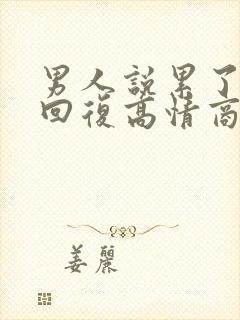 男人說累了
回復高情商
姜麗